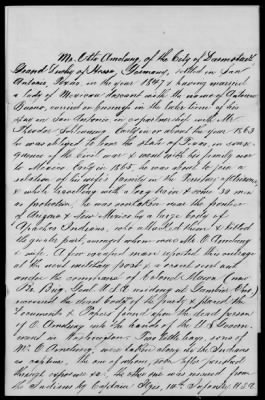 Mr. Otto Amelung, of the City of Darmstadt,
Grand Duchy of Hesse, Germany, settled in San
Antonio, Texas, in the year 1847 & having married
a lady of Mexican descent with the name of Antonia
Bueno, carried on business in the later time of his
stay in San Antonio in copartnership with Mr.
Theodor Schleuning. Early in or about the year 1863
he was obliged to leave the State of Texas, in conse-
quence of the civil war & went with his family over
to Mexico. Early in 1865, he was about to join a
relation of his wife's family in the
& while travelling with a long train & some 30 men
as protection, he was overtaken near the frontier
of Arizona & New Mexico by a large body of
Apaches Indians, who attacked them & killed
the greater part, amongst whom were Mr. O. Amelung
& wife. A few escaped men reported this outrage
at the next military post & a scout sent out
under the command of Colonel
Bv. Brig. Genl. U.S.A. residing at Gambier Ohio)
recovered the dead body of the party & placed the
documents & Papers found upon the dead person
of O. Amelung into the hands of the U.S. Govern-
ment in Washington. Two little boys, sons of
Mr. O. Amelung, were taken along by the Indians
as captives, the one of whom soon after perished
through exposure &c. the other one was rescued from
the Indians by Captain 10th Infantry U.S.A.